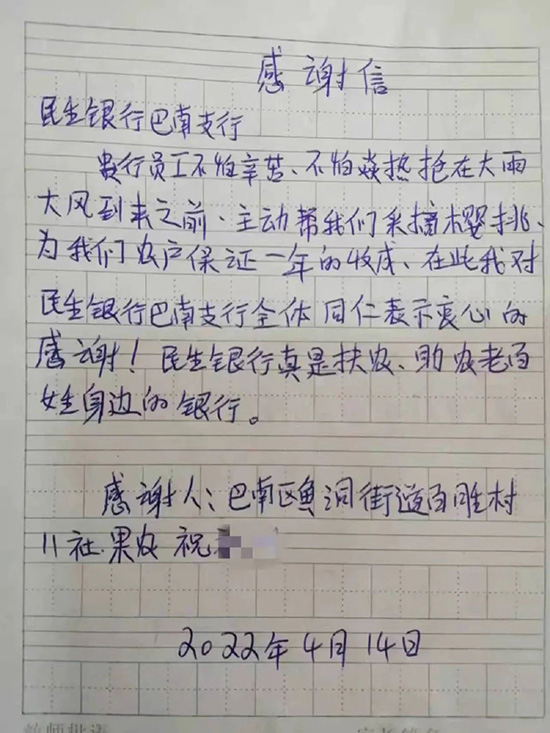 感谢信
民生银行巴南支行
贵行员工不怕辛苦、不怕焱热抢在大雨
大风到来之前、主动帮我们采摘樱挑、
为我们农户保证一年的收成、在此我对
民生银行巴南支行全体同仁表示衷心的
感谢！民生银行真是扶农、助农老百
姓身边的银行。
感谢人：巴南区鱼洞街道百胜村
11社.果农 祝
2022年4月14日